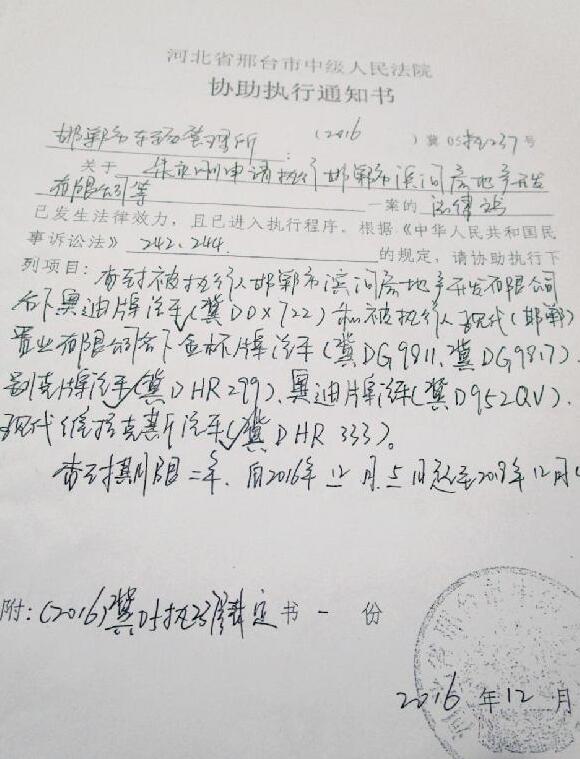 河北省邢台市中级人民法院
协助执行通知书
邯郸市车辆管理所:(2016)冀05执237号
关于 申请执行邯郸市滨河房地产开发
有限公司等 一案的 法律文
已发生法律效力,且已进入执行程序。根据《中华人民共和国民
事诉讼法》242、244. 的规定,请协助执行下
列项目:查封被执行人邯郸市滨河房地产开发有限公司
名下奥迪牌汽车(冀D0X722)和被执行人现代(邯郸)
置业有限公司名下金杯牌汽车(冀DG9811、冀DG9817)、
别克牌汽车(冀DHR299)、奥迪牌汽车(冀D952QV)、
现代维拉克斯汽车(冀DHR333)。
查封期限二年,自2016年12月5日起至2018年12月4
附:(2016)冀05执237 裁定书一份
2016年12月